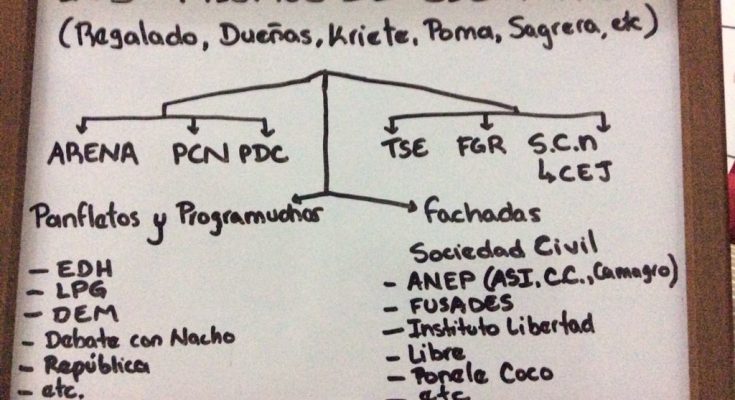 (Regalado, Dueñas, Kriete, Poma, Sagrera, etc)
ARENA PCN PDC
TSE FGR S.C.n
↳CEJ
Panfletos y Programuchos
- EDH
- LPG
- DEM
- Debate con Nacho
- República
- etc.
Fachadas
Sociedad Civil
- ANEP (ASI, C.C., Camagro)
- FUSADES
- Instituto Libertad
- Libre
- Ponele Coco
- etc